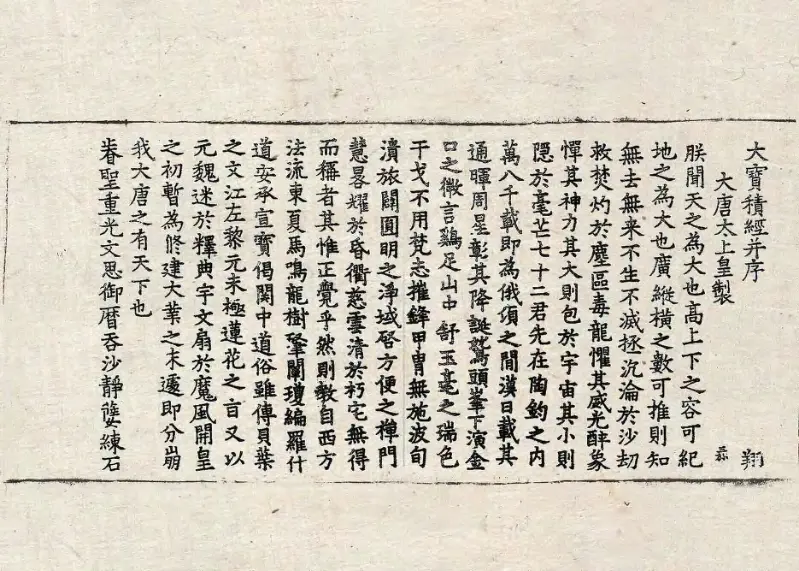 大寶積經并序 翔
大唐太上皇製
朕聞天之為大也高上下之容可紀
地之為大也廣縱橫之數可推則知
無去無来不生不滅拯沉淪於沙刧
救焚灼於塵區毒龍懼其威光醉象
憚其神力其大則包於宇宙其小則
隱於毫芒七十二君先在陶鈞之內
萬八千載即為俄頃之間漢日載其
通暉周星彰其降誕鷲頭峯下演金
口之微言鷄足山中舒玉毫之瑞色
干戈不用梵志摧鋒甲冑無施波旬
潰旅闢圓明之淨域啓方便之禪門
慧晷耀於昏衢慈雲清於朽宅無得
而稱者其惟正覺乎然則教自西方
法流東夏馬鳴龍樹肇闡瓊編羅什
道安承宣寶偈関中道俗雖傳貝葉
之文江左黎元未極蓮花之㫖又以
元魏迷於釋典宇文扇於魔風開皇
之初暫為修建大業之末遽即分崩
我大唐之有天下也
眷聖重光文思御曆吞沙靜孽練石